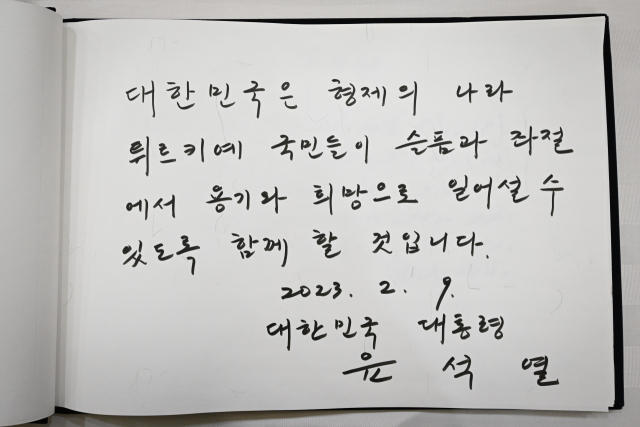 대한민국은 형제의 나라
튀르키예 국민들이 슬픔과 좌절
에서 용기와 희망으로 일어설 수
있도록 함께 할 것입니다.
2023. 2. 9.
대한민국 대통령
윤 석 열